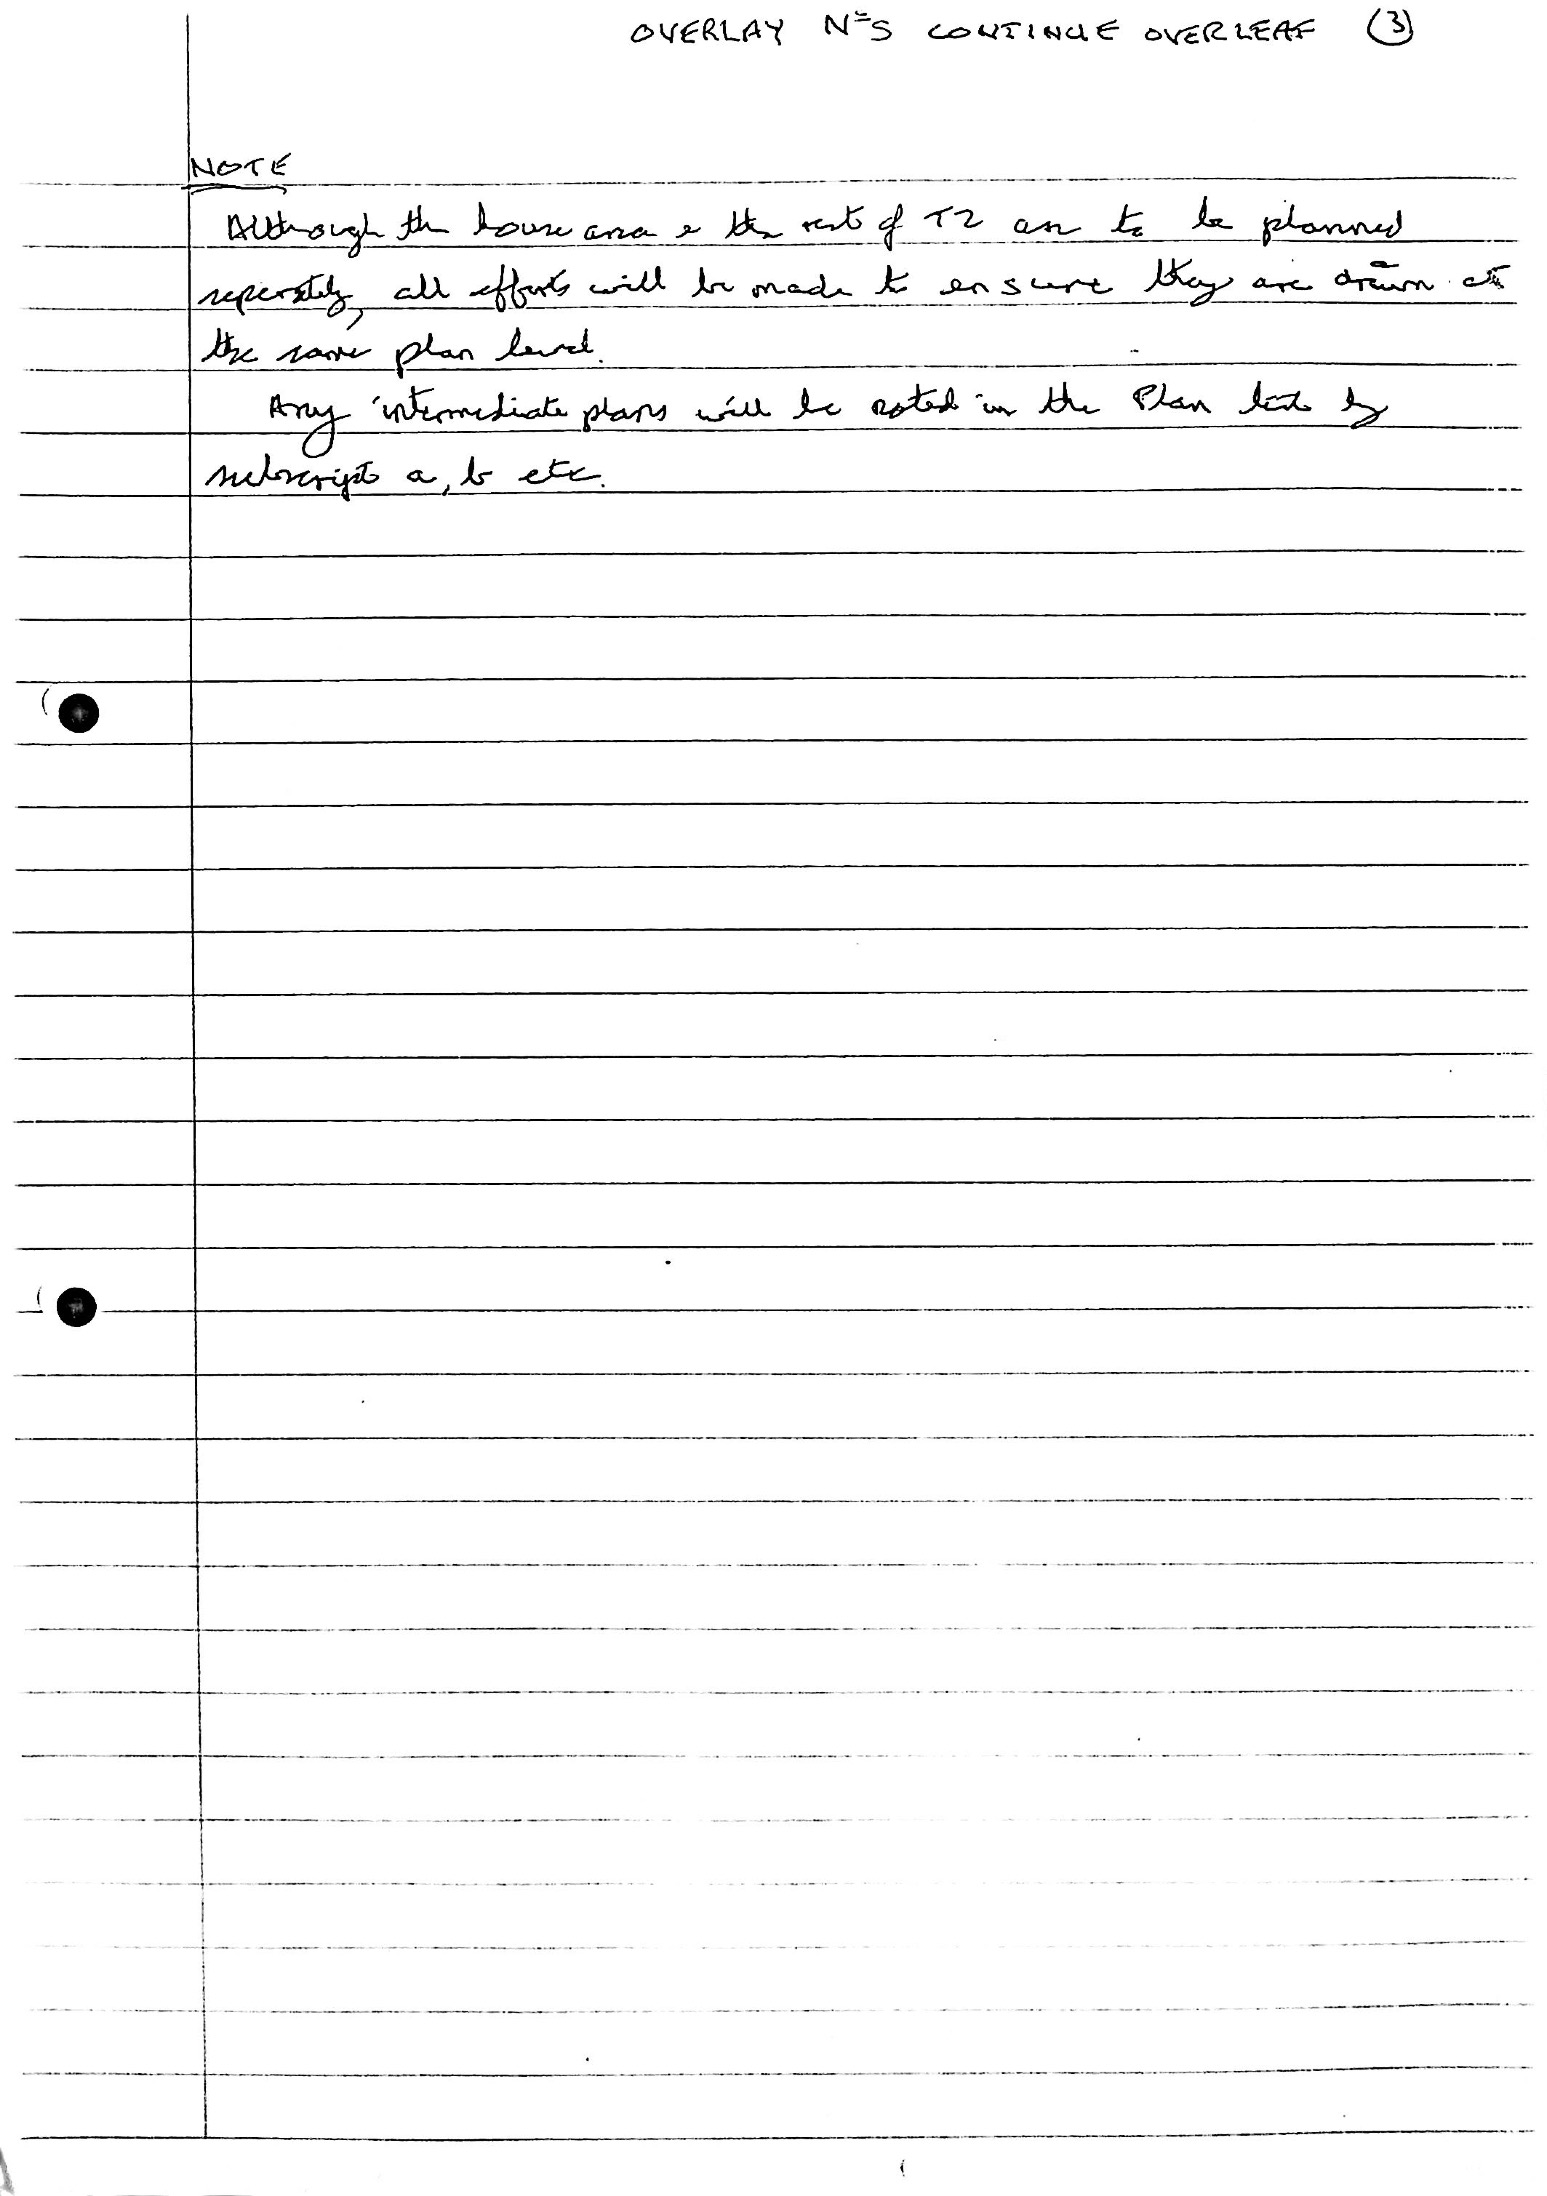 OVERLAY Nºs CONTINUE OVERLEAF (3)
NOTE
Although the house area & the rest of T2 are to be planned
seperately, all efforts will be made to ensure they are drawn at
the same plan level.
Any intermediate plans will be noted in the Plan list by
subscript a, b etc.